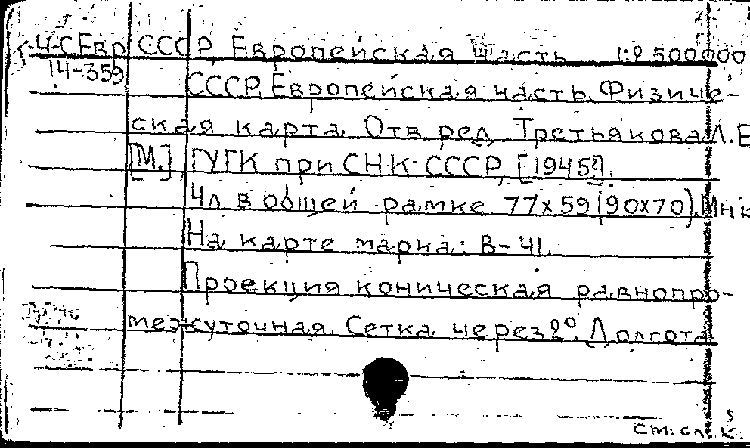 Г-Ч-СЕвр СССР, Европейская часть 1:2 500000
14-359
СССР, Европейская часть. Физиче-
ская карта. Отв. ред. Третьякова Л.Е
[М.] ГУГК при СНК СССР, [1945?].
4л. в общей рамке 77х59 (90х70). Мнк
На карте марка: В-41.
Проекция коническая равнопро-
межуточная. Сетка через 2°. Долгота
См. сл. к.